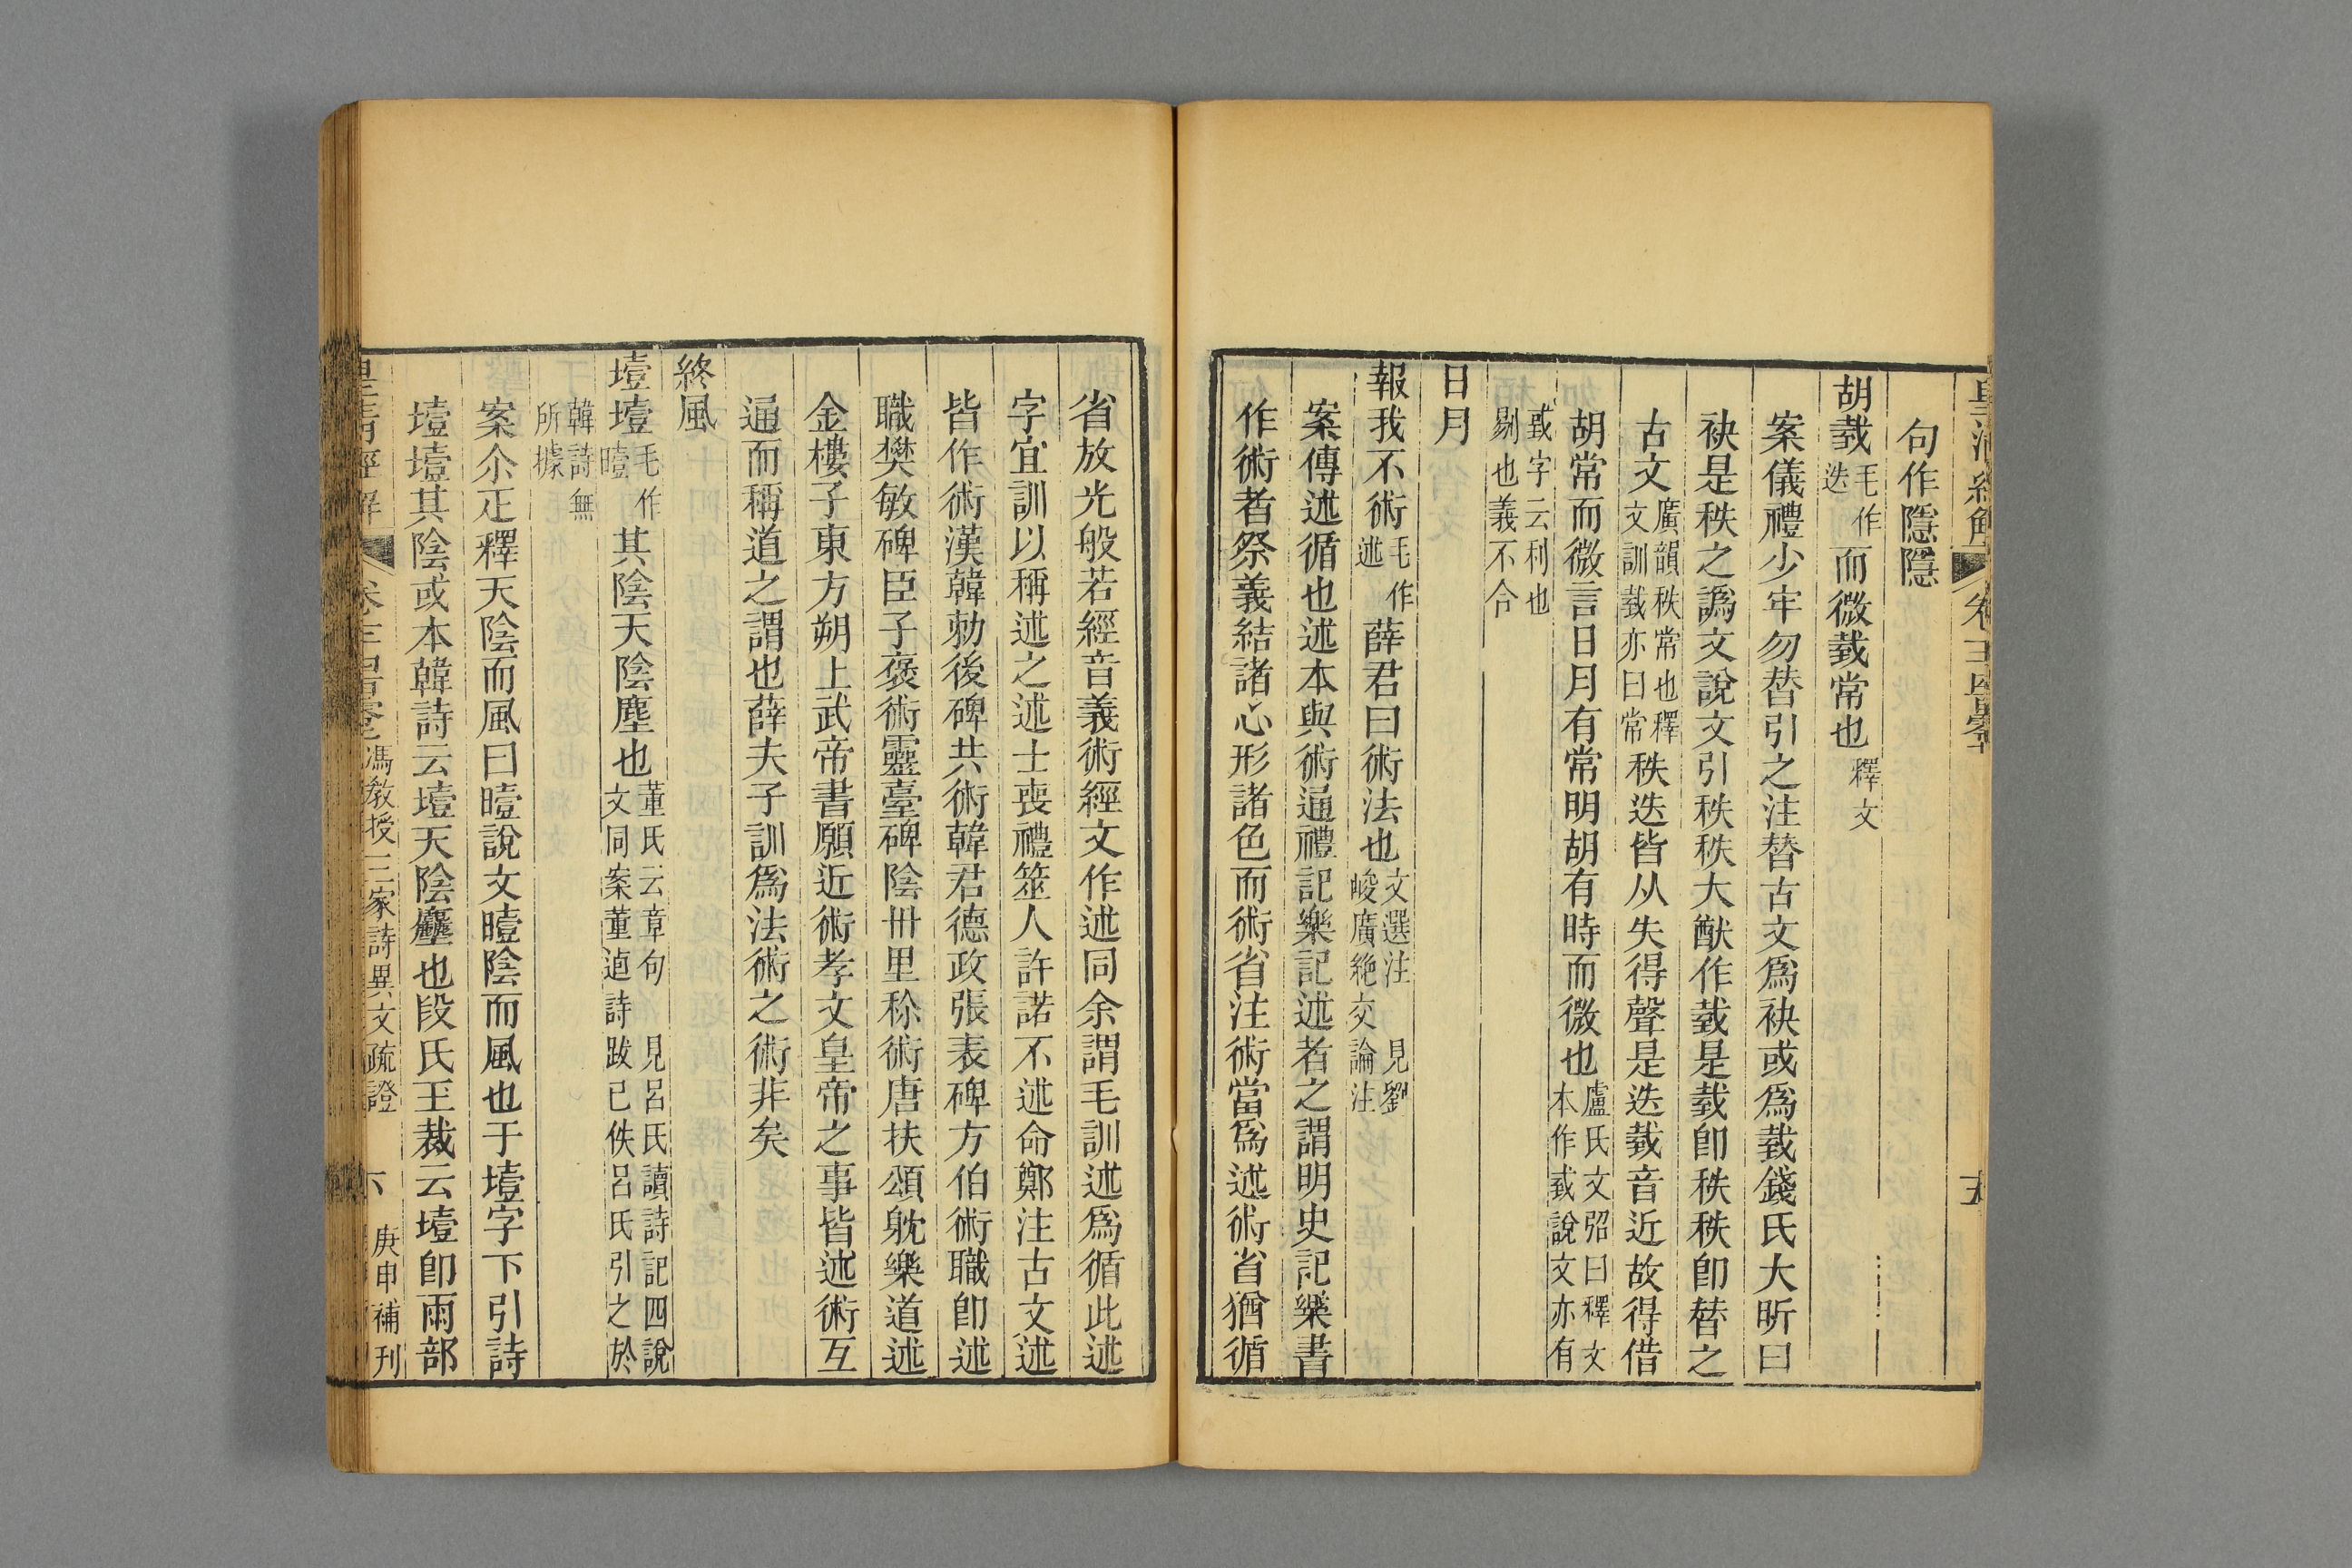 句作隱隱
胡䟽毛作迭而微䟽常也釋文
案儀禮少牢勿替引之注替古文爲袂或爲䟽錢氏大昕曰
袂是秩之譌文說文引秩秩大猷作䟽是䟽卽秩秩卽替之
古文廣韻秩常也釋文訓䟽亦曰常秩迭皆从失得聲是迭䟽音近故得借
胡常而微言日月有常明胡有時而微也盧氏文弨曰釋文本作䟽說文亦有
䟽字云利也剔也義不合
日月
報我不術毛作述薛君曰術法也文選注見劉峻廣絶交論注
案傳述循也述本與術通禮記樂記述者之謂明史記樂書
作術者祭義結諸心形諸色而術省注術當爲述術省猶循
省放光般若經音義術經文作述同余謂毛訓述爲循此述
字宜訓以稱述之述士喪禮筮人許諾不述命鄭注古文述
皆作術漢韓勅後碑共術韓君德政張表碑方伯術職卽述
職樊敏碑臣子褒術靈臺碑陰卌里稱術唐扶頌躭樂道述
金樓子東方朔上武帝書願近術孝文皇帝之事皆述術互
通而稱道之謂也薛夫子訓爲法術之術非矣
終風
壇壇毛作曀其陰天陰塵也董氏云章句見呂氏讀詩記四說文同案董逌詩跋已佚呂氏引之於
韓詩無所據
案尒疋釋天陰而風曰曀說文曀陰而風也于壇字下引詩
壇壇其陰或本韓詩云壇天陰塵也段氏玉裁云壇卽雨部
馮敎授三家詩異文疏證 六 庚申補刊